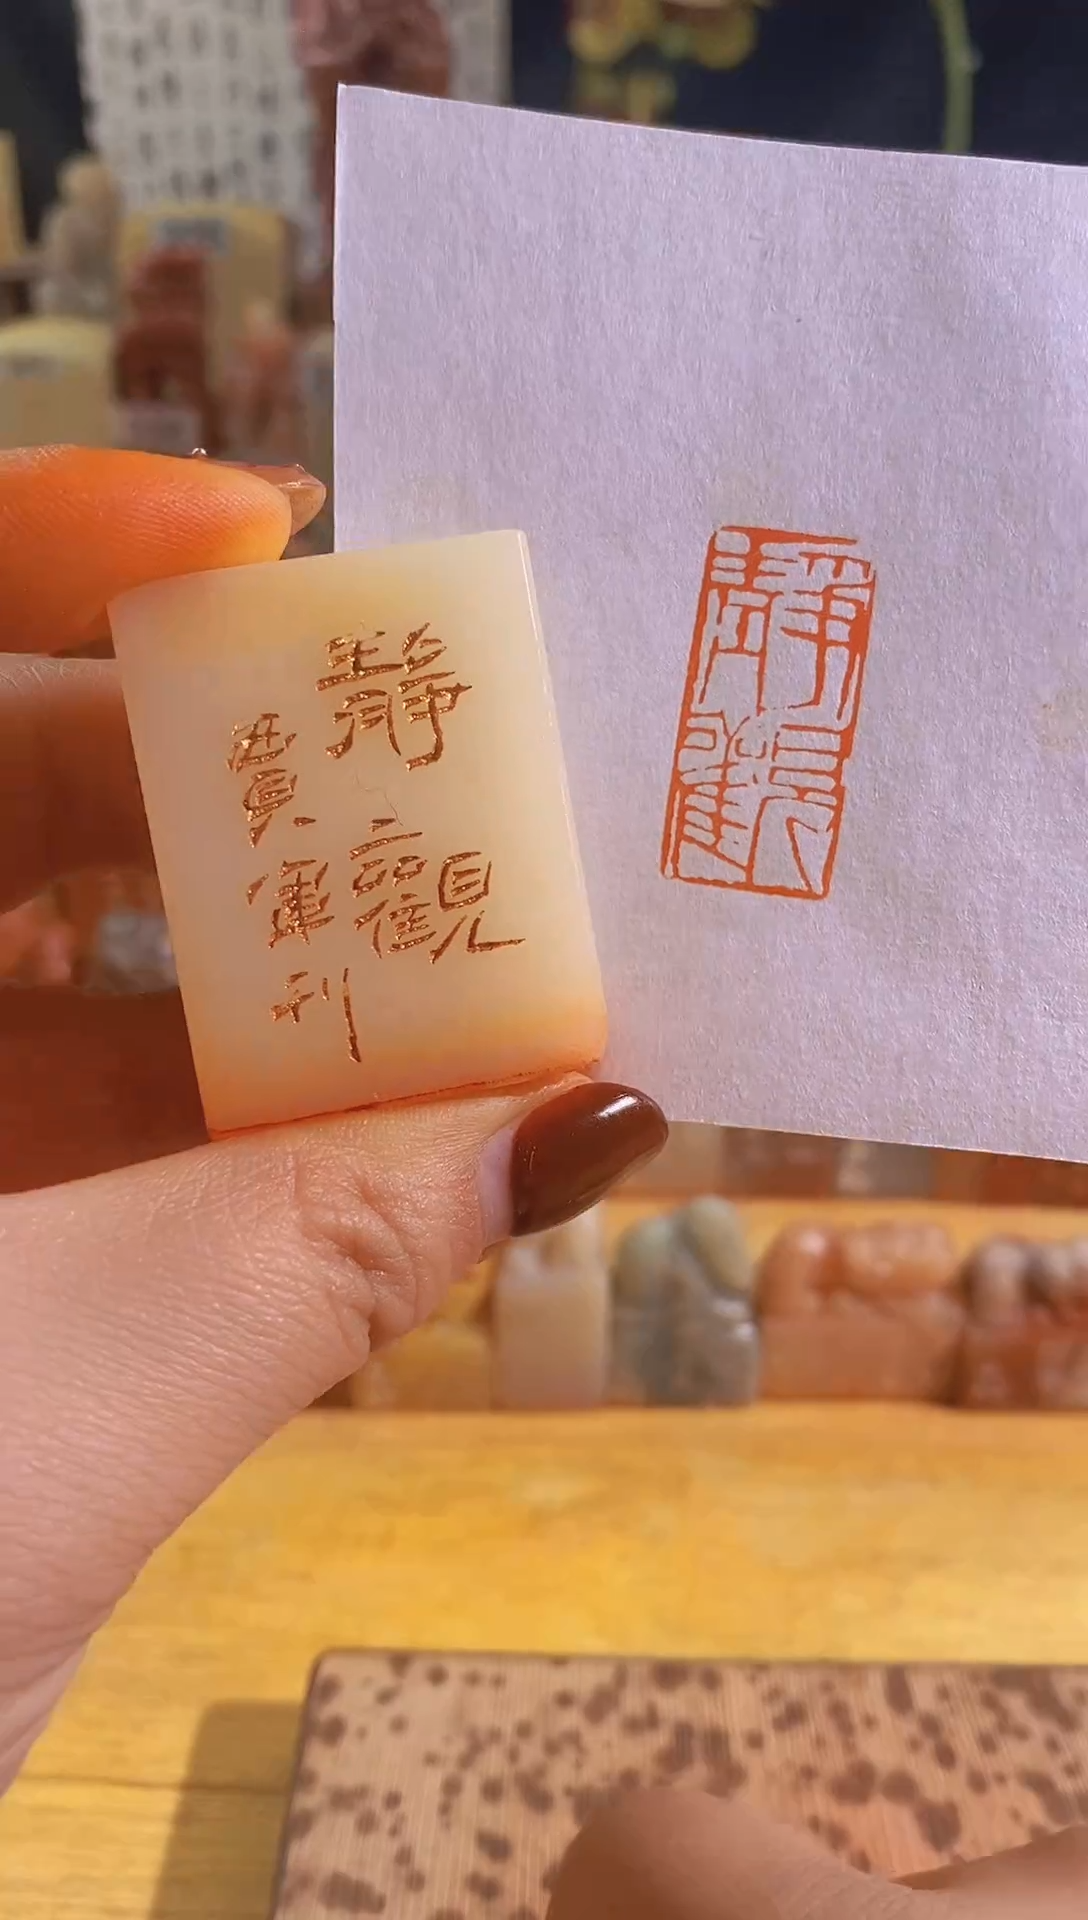 靜觀
費軍刊
靜觀